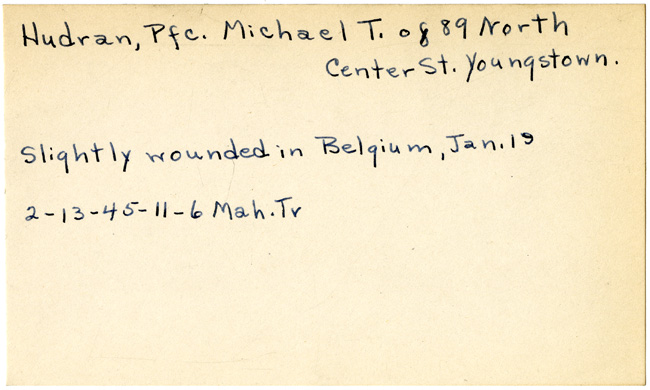 Hudran, Pfc. Michael T. of 89 North
Center St. Youngstown.
Slightly wounded in Belgium, Jan. 19
2-13-45-11-6 Mah. Tr